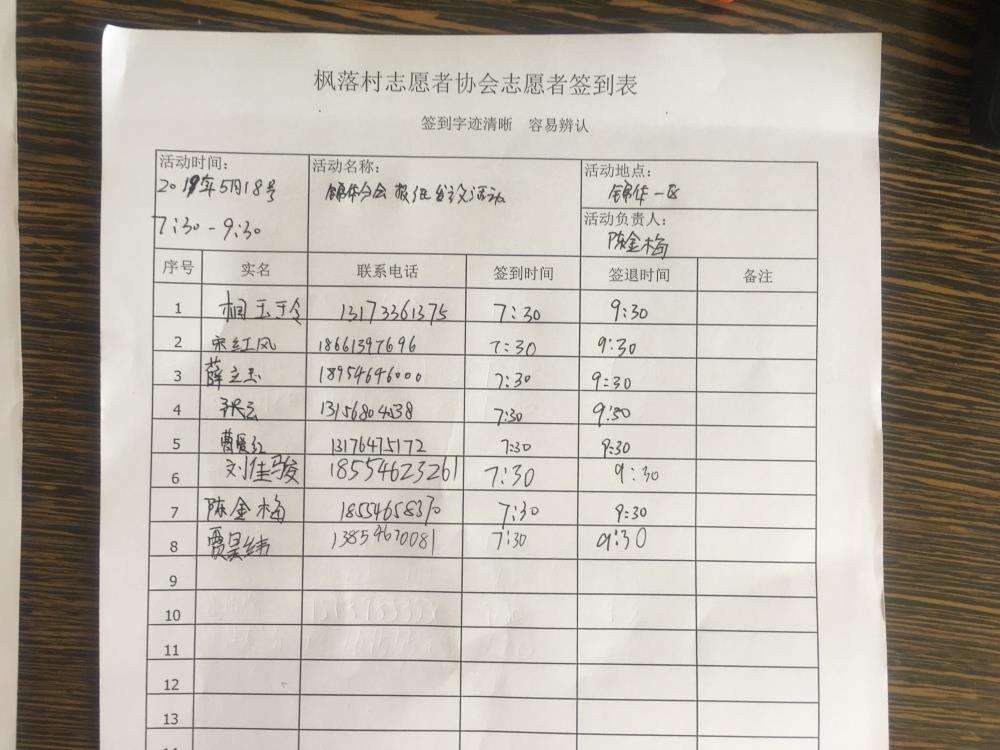 枫落村志愿者协会志愿者签到表
签到字迹清晰 容易辨认
活动时间: 活动名称: 活动地点:
2019年5月18号 锦华分会报纸发放活动 锦华一区
7:30-9:30 活动负责人:
陈金梅
序号 实名 联系电话 签到时间 签退时间 备注
1 相玉玲 13173361375 7:30 9:30
2 宋红凤 18661397696 7:30 9:30
3 薛立玉 18954646000 7:30 9:30
4 张云 13156804538 7:30 9:30
5 曹爱红 13176475172 7:30 9:30
6 刘佳骏 18554623261 7:30 9:30
7 陈金梅 18554658370 7:30 9:30
8 贾昊纬 13854670081 7:30 9:30
9
10
11
12
13